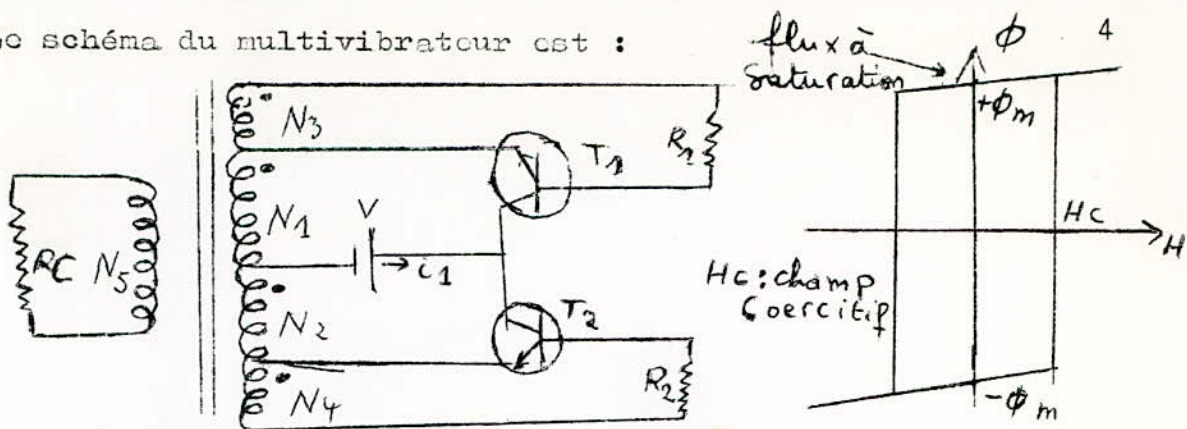 le schéma du multivibrateur est :
flux à
saturation
ϕ
4
+ϕm
N3
T1
R1
N1
V
i1
RC
N5
Hc
H
Hc : champ
Coercitif
N2
T2
R2
N4
-ϕm